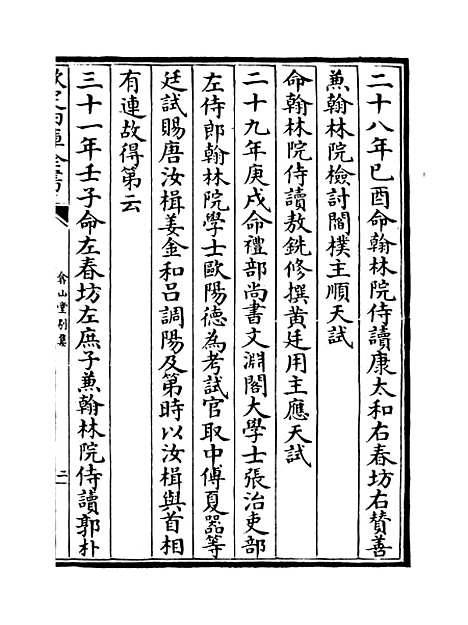 二十八年已酉命翰林院侍讀康太和右春坊右賛善
兼翰林院檢討閻樸主順天試
命翰林院侍讀敖銑修撰黄廷用主應天試
二十九年庚戌命禮部尚書文淵閣大學士張治吏部
左侍郎翰林院學士歐陽德為考試官取中傅夏器等
廷試賜唐汝楫姜金和吕調陽及第時以汝楫與首相
有連故得第云
三十一年壬子命左春坊左庶子兼翰林院侍讀郭朴
欽定四庫全書
弇山堂别集
二